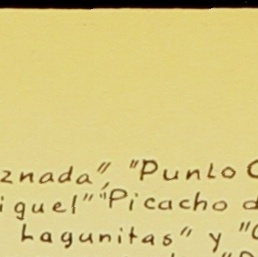 znada", "Punto C
iguel" "Picacho d
Lagunitas" y "C